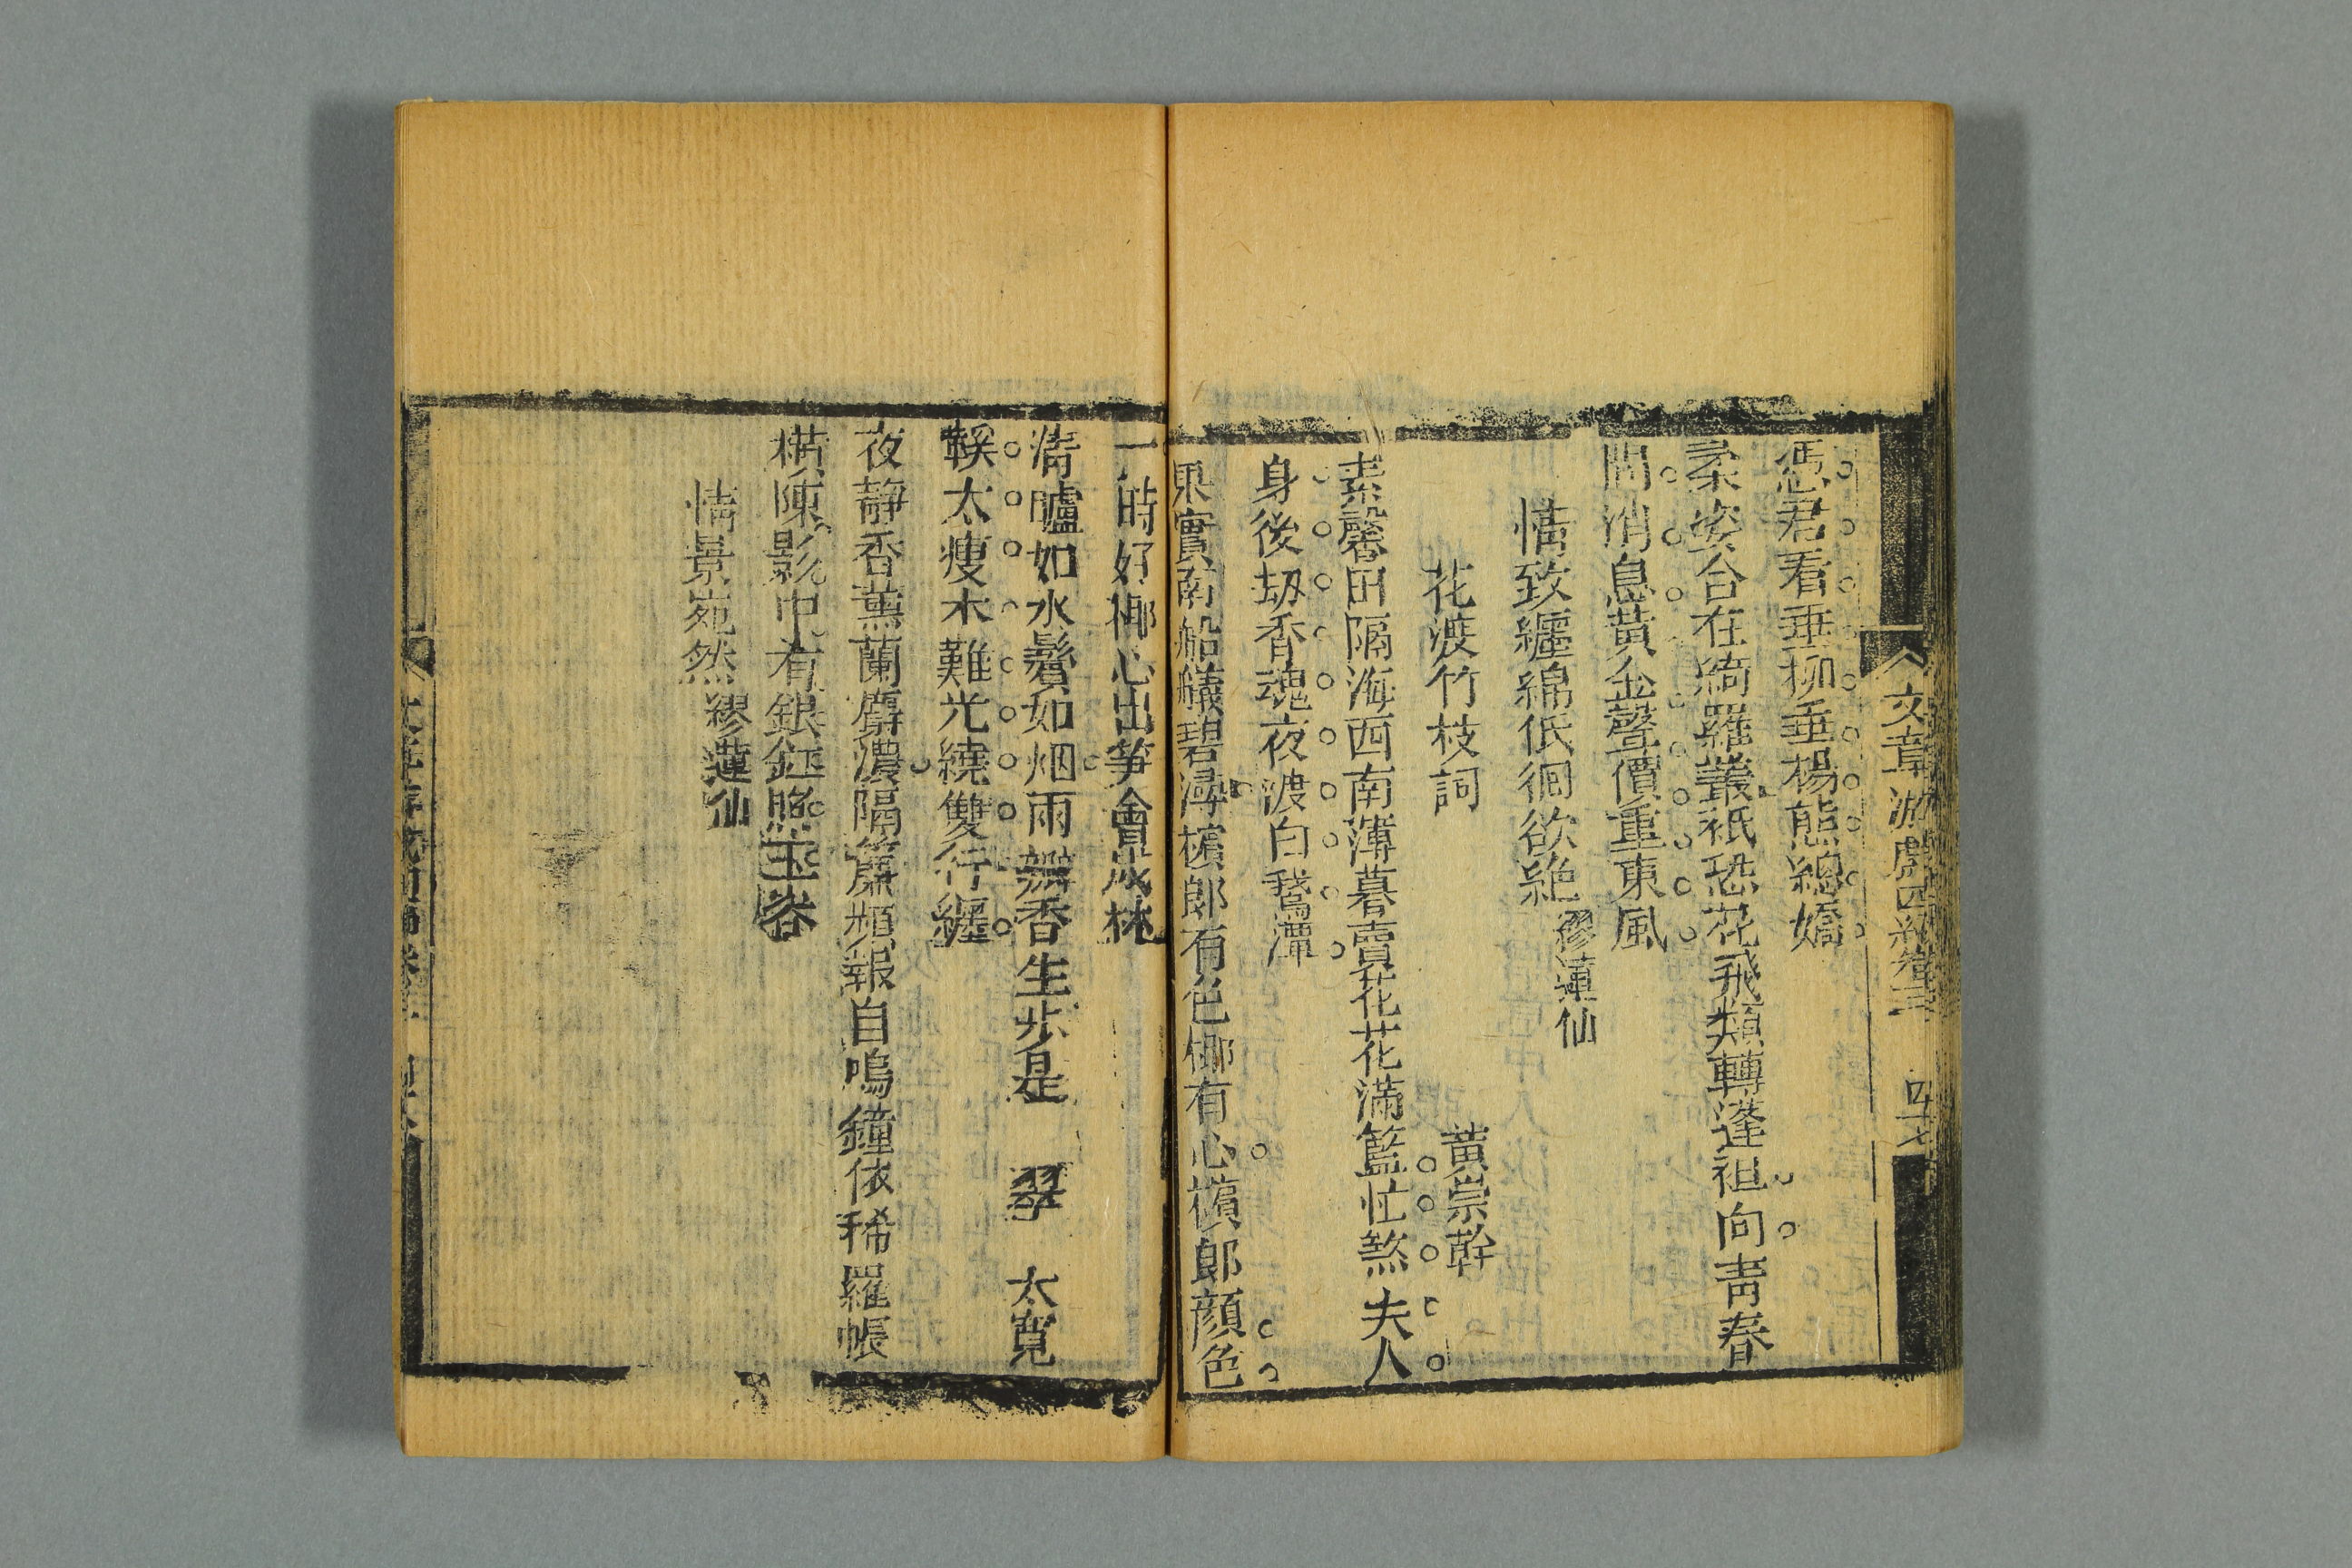 文章游戲四編卷三 四十七
憑君看垂柳垂楊態總嬌
柔姿合在綺羅叢祇恐花飛類轉蓬祖向靑春
問消息黃金聲價重東風
情致纏綿低徊欲絕繆蓮仙
花渡竹枝詞 黃崇幹
素馨田隔海西南薄暮賣花花滿籃忙煞夫人
身後刼香魂夜渡白鵝潭
果實南船艤碧潯檳郎有色椰有心檳郎顏色
一時好椰心出笋會成林
淸矑如水鬢如烟雨瓣香生步是 翠 太寬
鞵太瘦木難光繞雙行纏
夜靜香薰蘭麝濃隔簾頻報自鳴鐘依稀羅帳
橫陳影中有銀釭照玉容
情景宛然繆蓮仙